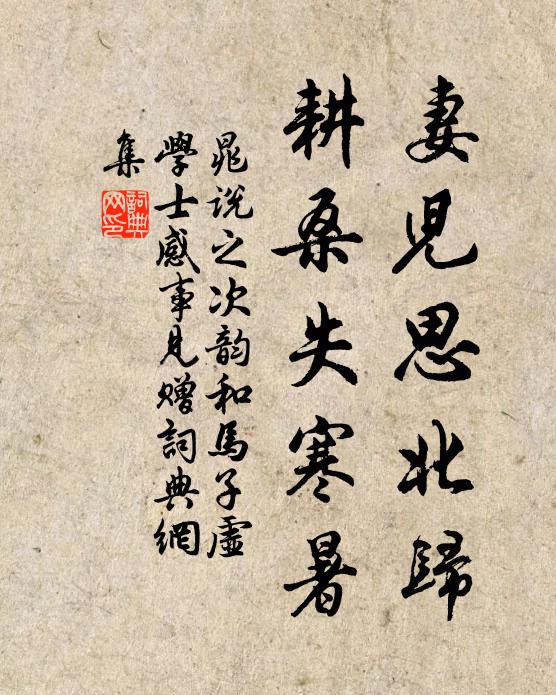 妻児思北歸
耕桑失寒暑
晁说之次韵和馬子虛
學士感事見贈詞典網
集
詞典
网印